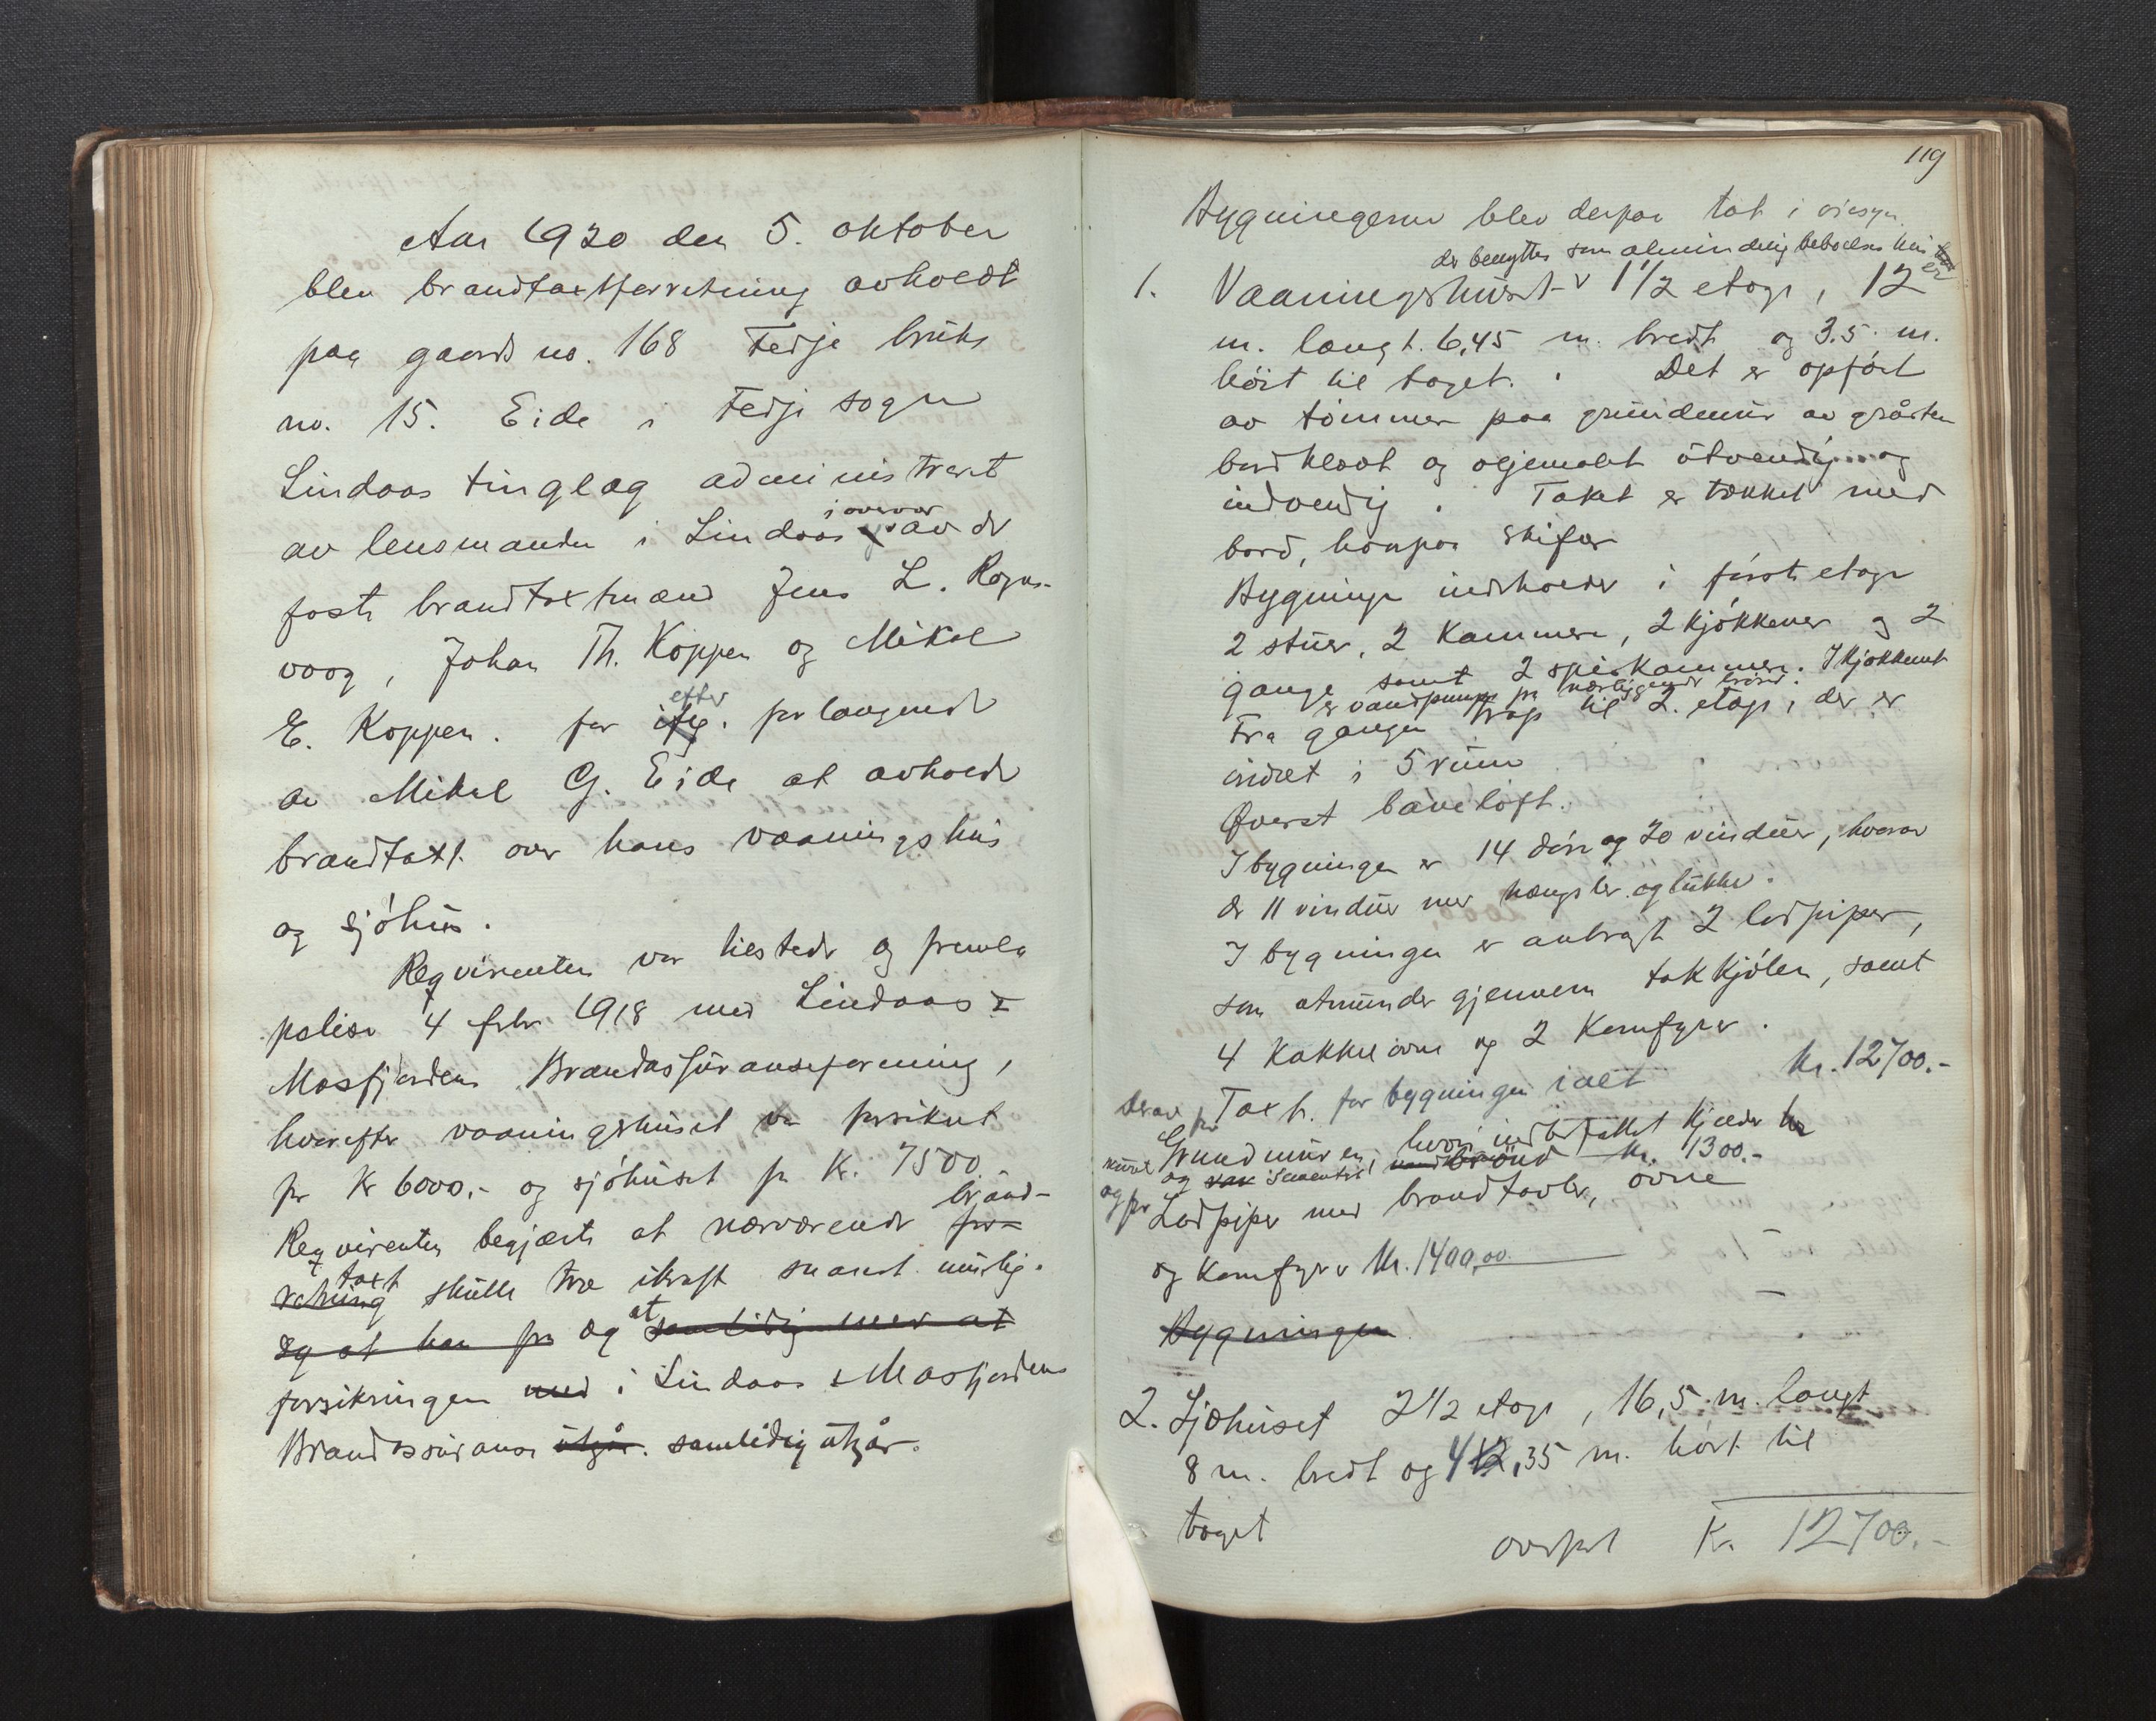 Aar 1920 den 5. oktober
blev brandtaxtforretning avholdt
paa gaards no. 168 Fedje bruks
no. 15. Eide i Fedje sogn
Lindaas tinglag administrert
av lensmanden i Lindaas i overvær av de
faste brandtaxtmænd Jens L. Rogns-
vaag, Johan Th. Koppen og Mikal
E. Koppen. for efter forlangende
av Mikal G. Eide at avholde
brandtaxt over hans vaaningshus
og sjöhus.
Reqvirenten var tilstede og fremla
polise 4 febr 1918 med Lindaas &
Masfjordens Brandassüranseforening,
hvorefter vaaningshuset var forsikret
for Kr 6000.- og sjöhuset for Kr. 7500.-
Reqvirenten begjærte at nærværende brand-
for-
retning taxt skulle træ ikraft snarest mulig.
og at han fra og at samtidig med at
forsikringen med i Lindaas & Masfjordens
Brandassüranse utgår. samtidig utgår.
119
Bygningerne blev derpaa tat i öiesyn
der benyttes som almindelig beboelses hus
1. Vaaningshuset 1 1/2 etage, er 12
m. langt. 6,45 m. bredt og 3.5 m.
höit til taget. Det er opfört
av tömmer paa grundmur av gråsten
bordklædt og oljemalet utvendig og
indvendig. Taket er tækket med
bord, hvorpaa skifer
Bygningen indeholder i förste etage
2 stuer, 2 Kammere, 2 kjökkener og 2
gange samt 2 spiskammere. I kjökkenet
er vandpumpe fra nærliggende brönd.
Fra gangen trap til 2. etage, der er
indret i 5 rum
Øverst bare loft.
I bygningen er 14 döre og 20 vinduer, hvorav
de 11 vinduer med hængsler og lukke.
I bygningen er anbragt 2 ledpiper,
som utmunder gjennem takkjölen, samt
4 Kakkelovne og 2 Komfyrer.
Taxt. for bygningen ialt Kr. 12700.-
Derav for
Grundmuren, hvori indbefattet kjelder
og cementert brönd Kr. 1300.-
og for Ledpiper med brandtavler, ovne
og Komfyrer Kr. 1400,00
Bygningen
2. Sjöhuset 2 1/2 etage, 16,5 m. langt
8 m. bredt og 4,35 m. höit til
taget
overført Kr. 12700.-